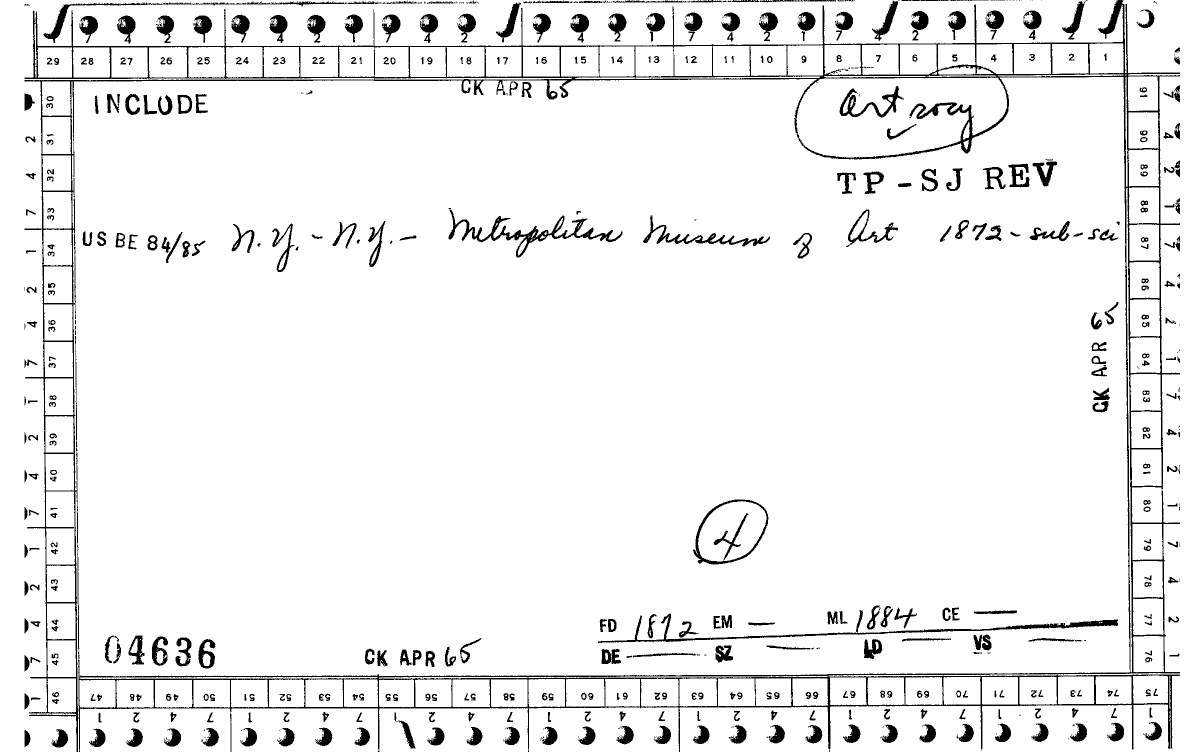 7 4 2 1 7 4 2 1 7 4 2 1 7 4 2 1 7 4 2 1 7 4 2 1 7 4 2 1
29 28 27 26 25 24 23 22 21 20 19 18 17 16 15 14 13 12 11 10 9 8 7 6 5 4 3 2 1
CK APR 65
INCLUDE
Art
TP-SJ REV
US BE 84/85 N.Y. - N.Y. - Metropolitan Museum of Art 1872 - sub-sci
CK APR 65
4
FD 1872 EM — ML 1884 CE —
DE — SZ — LD — VS —
04636
CK APR 65
30 31 32 33 34 35 36 37 38 39 40 41 42 43 44 45 46
91 90 89 88 87 86 85 84 83 82 81 80 79 78 77 76 75
47 48 49 50 51 52 53 54 55 56 57 58 59 60 61 62 63 64 65 66 67 68 69 70 71 72 73 74